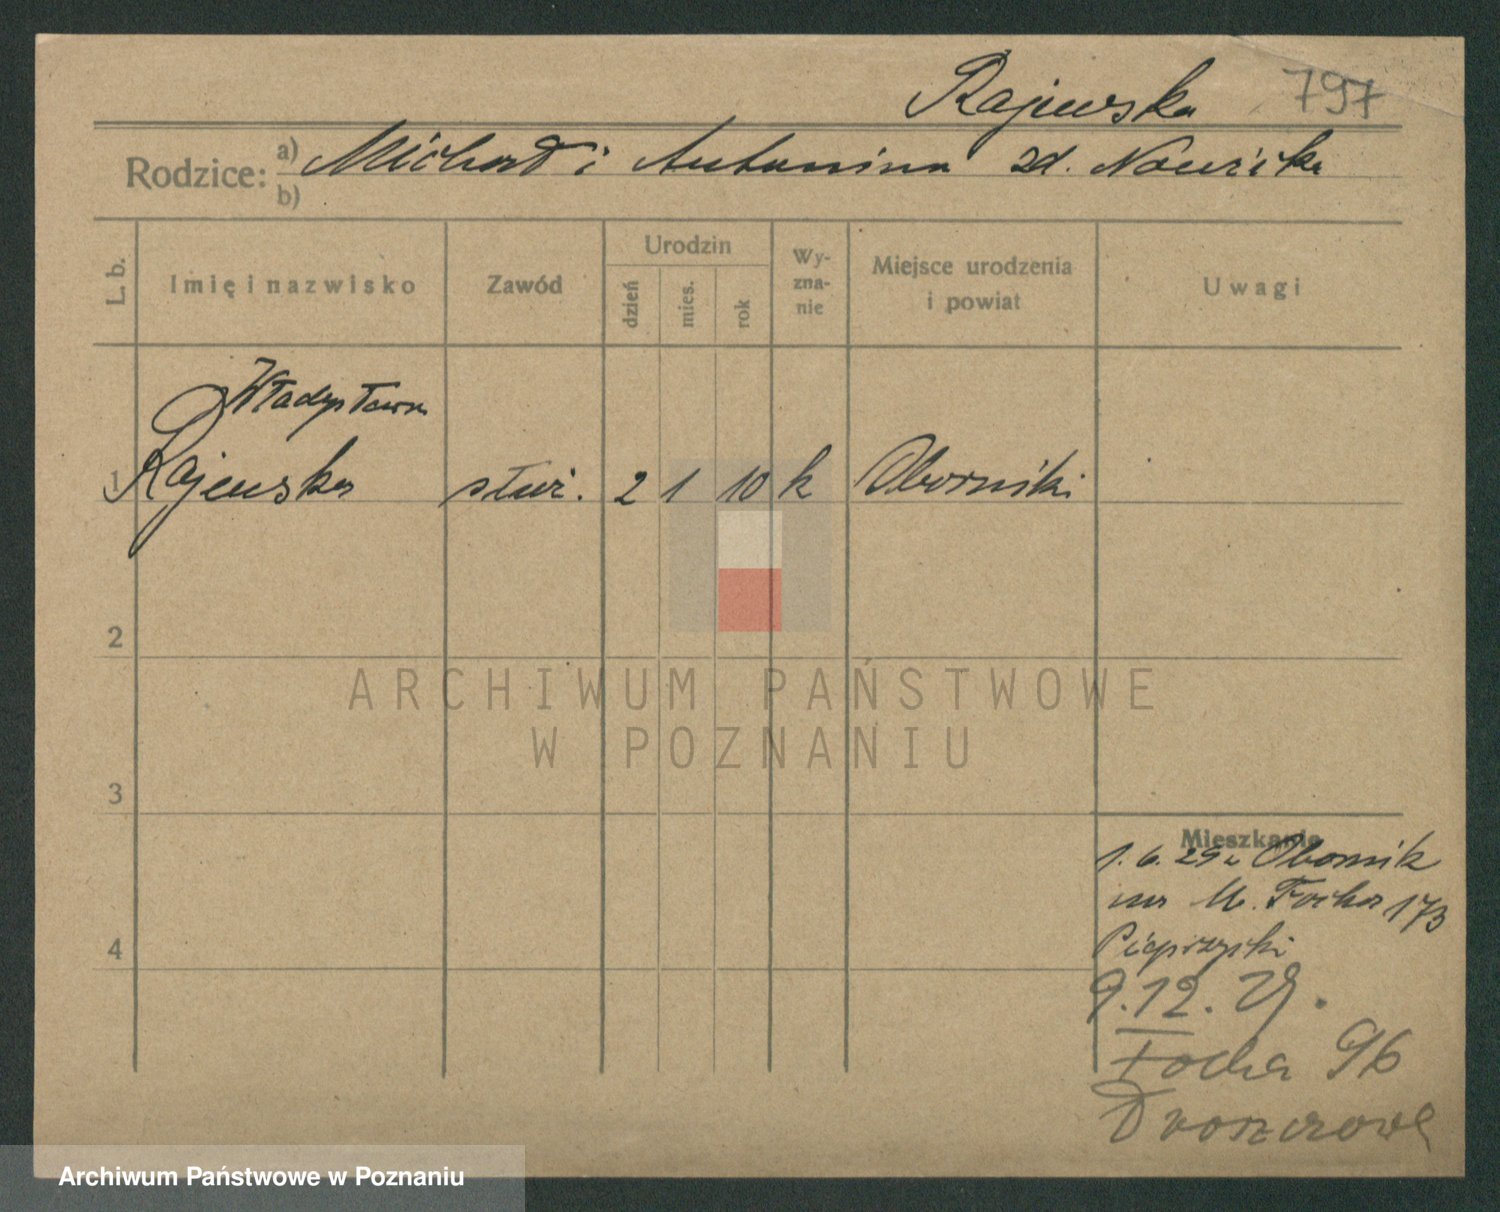 Rajewska 797
Rodzice: a) Michał i Antonina zd. Nowicka
b)
L. b. Imię i nazwisko Zawód Urodzin dzień mies. rok Wy-zna-nie Miejsce urodzenia i powiat Uwagi
Władysława
1 Rajewska służ. 2 1 10 k Oborniki
2
ARCHIWUM PAŃSTWOWE
W POZNANIU
3
Mieszkanie
1. 6. 29 z Obornik
na M. Focha 173
9.12. 29.
Focha 96
4
Archiwum Państwowe w Poznaniu